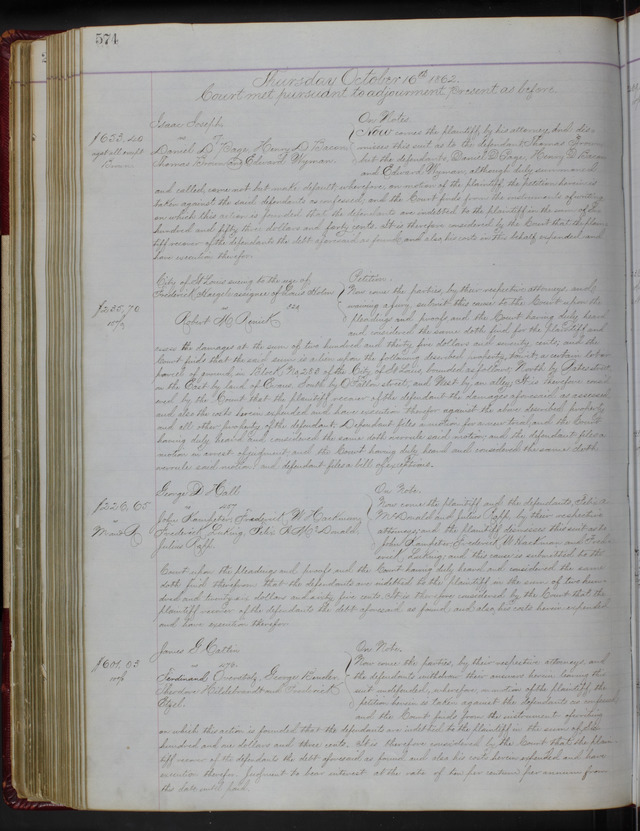 574
Thursday October 16th 1862.
Court met pursuant to adjournment, Present as before
Isaac Joseph
vs
Daniel D. Page, Henry D. Bacon
Thomas Brown & Edward Wyman
$653.40
agst all except
Brown
On Notes.
Now comes the plaintiff, by his attorney, and dis-
misses this suit as to the defendant Thomas Brown
but the defendants, Daniel D. Page, Henry D. Bacon
and Edward Wyman, although duly summoned
and called, came not but made default; wherefore, on motion of the plaintiff, the petition herein is
taken against the said defendants as confessed, and the Court finds from the instruments of writing
on which this action is founded that the defendants are indebted to the plaintiff in the sum of six
hundred and fifty three dollars and forty cents. It is therefore considered by the Court that the plain-
tiff recover of the defendants the debt aforesaid as found, and also his costs in this behalf expended and
have execution therefor.
City of St Louis suing to the use of
Frederick assignee of Louis
vs
Robert M. Renick
$235.70
Petition
Now come the parties, by their respective attorneys, and
waiving a jury submit this cause to the Court upon the
pleadings and proofs and the Court having duly heard
and considered the same doth find for the plaintiff and
assess the damages at the sum of two hundred and thirty five dollars and seventy cents, and the
Court finds that the said sum is a lien upon the following described property, to wit: a certain lot or
parcel of ground, in Block No 250 of the City of St Louis, bounded as follows, North by street
on the East by land of Evans, South by O'Fallon street, and West by an alley; It is therefore consid-
ered by the Court that the plaintiff recover of the defendant the damages aforesaid as assessed,
and also the costs herein expended and have execution therefor against the above described property
and all other property of the defendant. Defendant files a motion for a new trial, and the Court
having duly heard and considered the same doth overrule said motion, and the defendant files a
motion in arrest of judgment, and the Court having duly heard and considered the same doth
overrule said motion and defendant files a bill of exceptions.
George D. Hall
vs 257
John Frederick W. Hackman
Frederick Felix McDonald
Julius
$226.65
On Note.
Now come the plaintiff and the defendants, Felix
McDonald and Julius by their respective
attorneys, and the plaintiff dismisses this suit as to
John Frederick W. Hackman and Fred-
erick and this cause is submitted to the
Court upon the pleadings and proofs and the Court having duly heard and considered the same
doth find therefrom that the defendants are indebted to the plaintiff in the sum of two hun-
dred and twenty six dollars and sixty five cents. It is therefore considered by the Court that the
plaintiff recover of the defendants the debt aforesaid as found, and also, his costs herein expended
and have execution therefor
James G.
vs
Ferdinand George
Theodore Hildebrandt and Frederick
$601.03
On Note,
Now come the parties, by their respective attorneys, and
the defendants withdraw their answers herein leaving this
suit undefended, wherefore on motion of the plaintiff, the
petition herein is taken against the defendants as confessed
and the Court finds from the instrument of writing
on which this action is founded that the defendants are indebted to the plaintiff in the sum of six
hundred and one dollars and three cents. It is therefore considered by the Court that the plain-
tiff recover of the defendants the debt aforesaid as found and also his costs herein expended and have
execution therefor. Judgment to bear interest at the rate of ten per centum per annum from
this date until paid.